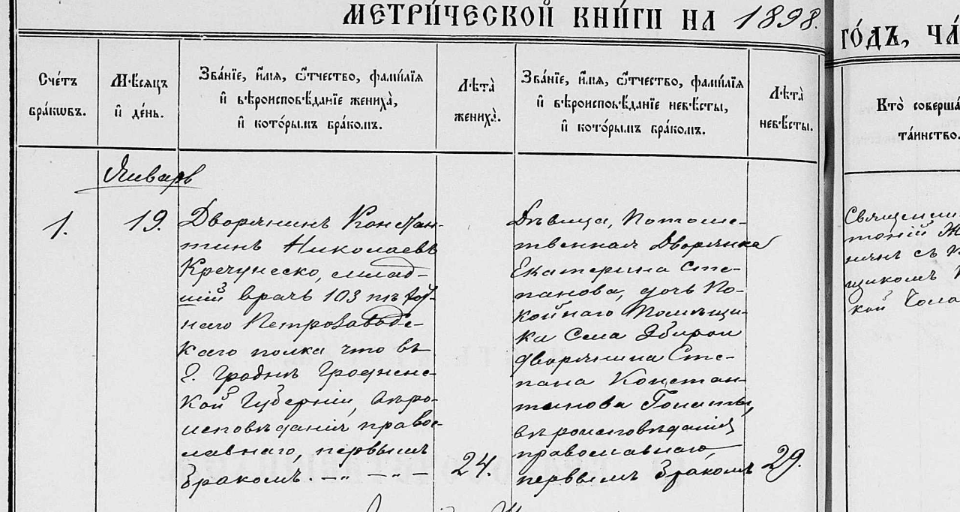 МЕТРИ́ЧЕСКОЙ КНИ́ГИ НА 1898.
ГО́ДЪ, ЧА́
Сче́тъ
бра́кѡвъ.
Мѣ́сяцъ
и де́нь.
Зва́нїе, и́мя, ѻ́тчество, фами́лїя
и вѣроисповѣ́данїе жениха̀,
и кото́рымъ бра́комъ.
Лѣта̀
жениха̀.
Зва́нїе, и́мя, ѻ́тчество, фами́лїя
и вѣроисповѣ́данїе невѣ́сты,
и кото́рымъ бра́комъ.
Лѣта̀
невѣ́сты.
Кто̀ соверша́
та́инство.
Январь
1.
19.
Дворянинъ Констан-
тинъ Николаевъ
Кречунеско, млад-
шій врачъ 103 пѣхот-
наго Петрозаводс-
каго полка что въ
г. Гроднѣ Гродненс-
кой Губерніи, вѣро-
исповѣданія правос-
лавнаго, первымъ
бракомъ. -„- - -
24.
Дѣвица, Потомс-
твенная Дворянка
Екатерина Сте-
панова, дочь По-
койнаго Помѣщи-
ка Села
дворянина Сте-
пана Констан-
тинова
вѣроисповѣданія
православнаго,
первымъ бракомъ
29.
Священни
тоній
кой